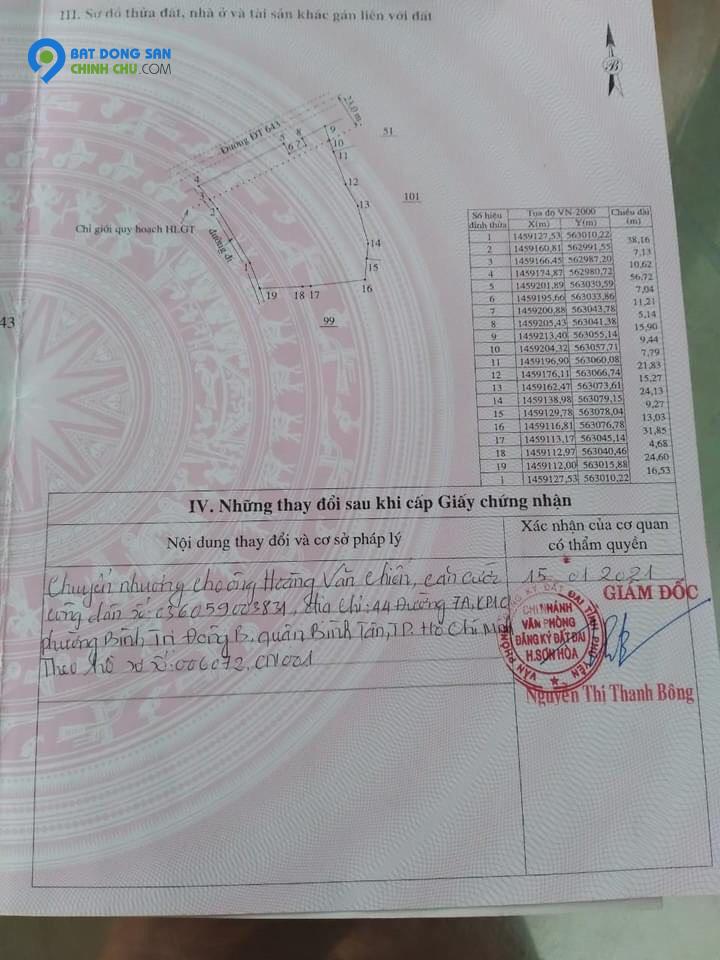 III. Sơ đồ thửa đất, nhà ở và tài sản khác gắn liền với đất
BAT DONG SAN
CHINH CHU.COM
B
Đường ĐT 643
23,0 m
51
101
99
43
Chỉ giới quy hoạch HLGT
đường đi
1
2
3
4
5
6
7
8
9
10
11
12
13
14
15
16
17
18
19
Số hiệu đỉnh thửa Tọa độ VN-2000 Chiều dài (m)
X(m) Y(m)
1 1459127,53 563010,22
38,16
2 1459160,81 562991,55
7,13
3 1459166,45 562987,20
10,62
4 1459174,87 562980,72
56,72
5 1459201,89 563030,59
7,04
6 1459195,66 563033,86
11,21
7 1459200,88 563043,78
5,14
8 1459205,43 563041,38
15,90
9 1459213,40 563055,14
9,44
10 1459204,32 563057,71
7,79
11 1459196,90 563060,08
21,83
12 1459176,11 563066,74
15,27
13 1459162,47 563073,61
24,13
14 1459138,98 563079,15
9,27
15 1459129,78 563078,04
13,03
16 1459116,81 563076,78
31,85
17 1459113,17 563045,14
4,68
18 1459112,97 563040,46
24,60
19 1459112,00 563015,88
16,53
1 1459127,53 563010,22
IV. Những thay đổi sau khi cấp Giấy chứng nhận
Nội dung thay đổi và cơ sở pháp lý
Xác nhận của cơ quan
có thẩm quyền
Chuyển nhượng cho ông Hoàng Văn Chiến, căn cước
công dân số: 036059003831, địa chỉ: 44 Đường 7A, KP10
phường Bình Trị Đông B, quận Bình Tân, TP. Hồ Chí Minh
Theo hồ sơ số: 006072.CN001
15 01 2021
GIÁM ĐỐC
VĂN PHÒNG ĐĂNG KÝ ĐẤT ĐAI TỈNH PHÚ YÊN
CHI NHÁNH
VĂN PHÒNG
ĐĂNG KÝ ĐẤT ĐAI
H.SƠN HÒA
Nguyễn Thị Thanh Bông